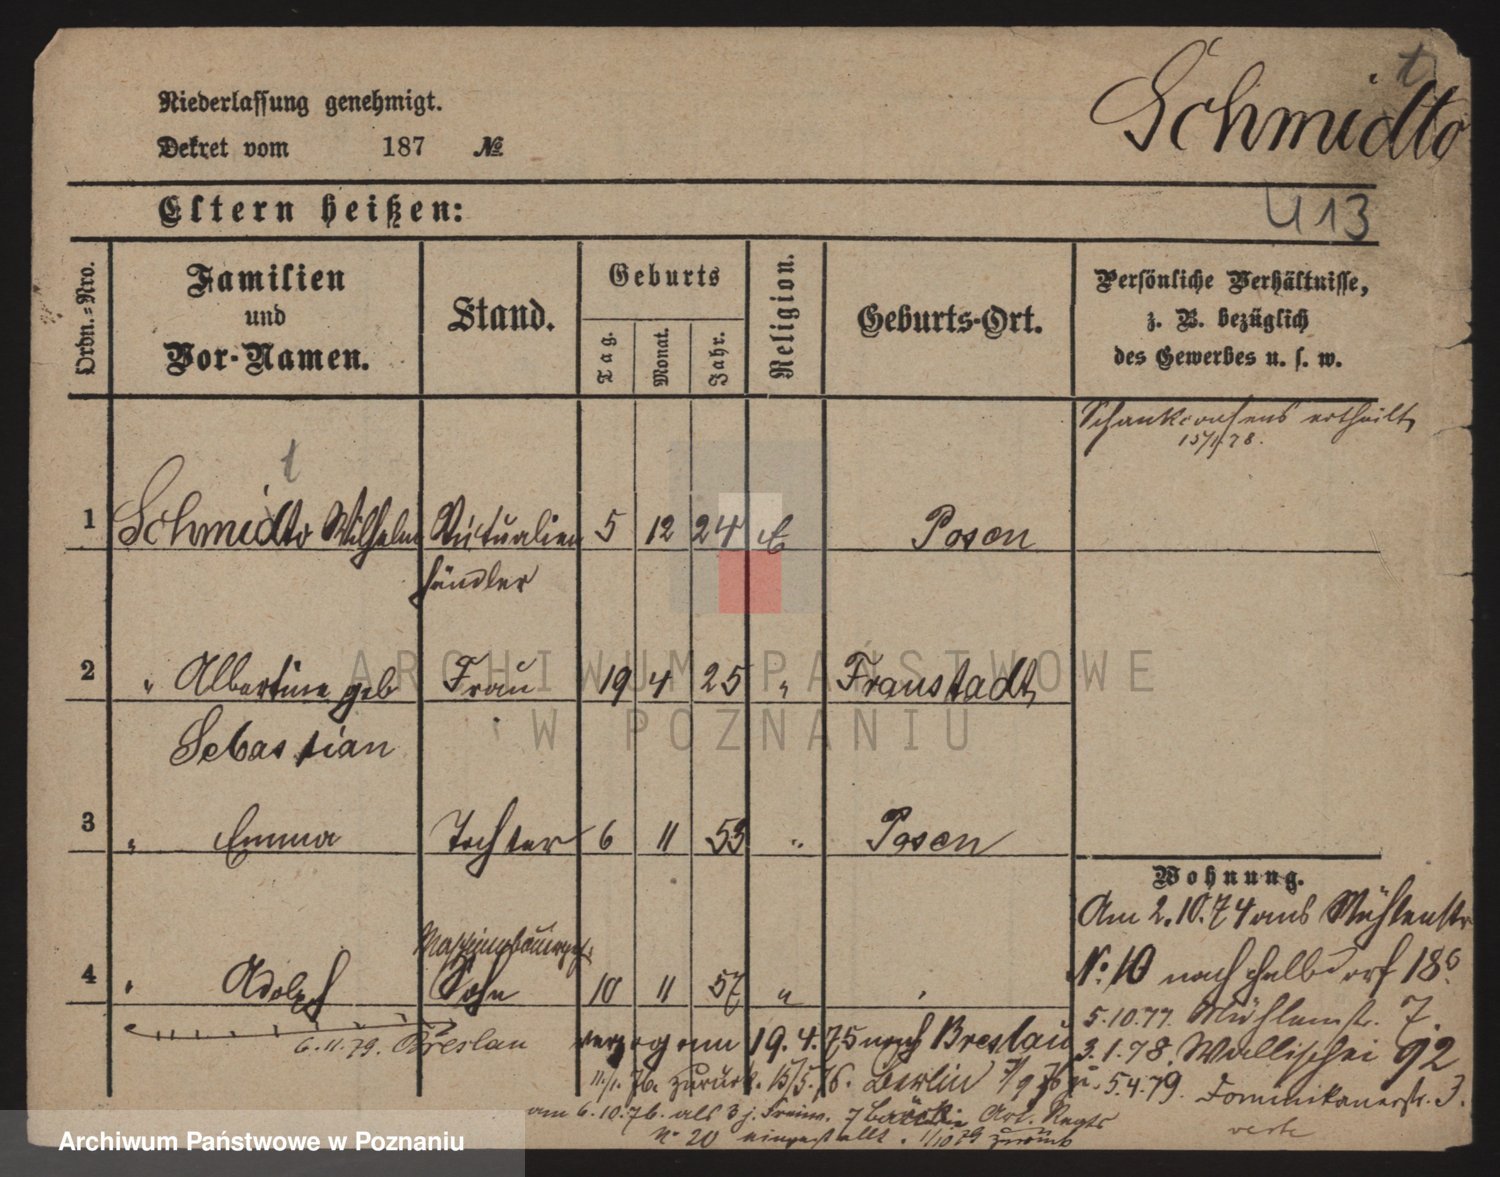 Schmidto
Niederlassung genehmigt.
Dekret vom 187 №
Eltern heißen:
413
Ordn.-Nro.
Familien
und
Vor-Namen.
Stand.
Geburts
Tag.
Monat.
Jahr.
Religion.
Geburts-Ort.
Persönliche Verhältnisse,
z. B. bezüglich
des Gewerbes u. s. w.
Schankconsens ertheilt
15/1 78.
1 Schmidto Wilhelm Victualien 5 12 24 Posen
händler
2 " Albertine geb Frau 19 4 25 " Fraustadt
Sebastian
3 " Emma Tochter 6 11 53 " Posen
4 " Adolph Sohn 10 11 57 "
Wohnung.
Am 2.10.74 aus Mühlenstr
No. 10 nach Halbdorf 18
5.10.77. Mühlenstr. 7.
3.1.78. Wallischei 92
5.4.79. Dominikanerstr. 3.
6.11.79. Breslau
verzogen 19.4.75 nach Breslau
zurück. 15/5.76. Berlin
am 6.10.76. als 3 j. Freiw. Art. Regts
No 20 eingestellt. 1/10 79 zurück
ARCHIWUM PAŃSTWOWE
W POZNANIU
Archiwum Państwowe w Poznaniu